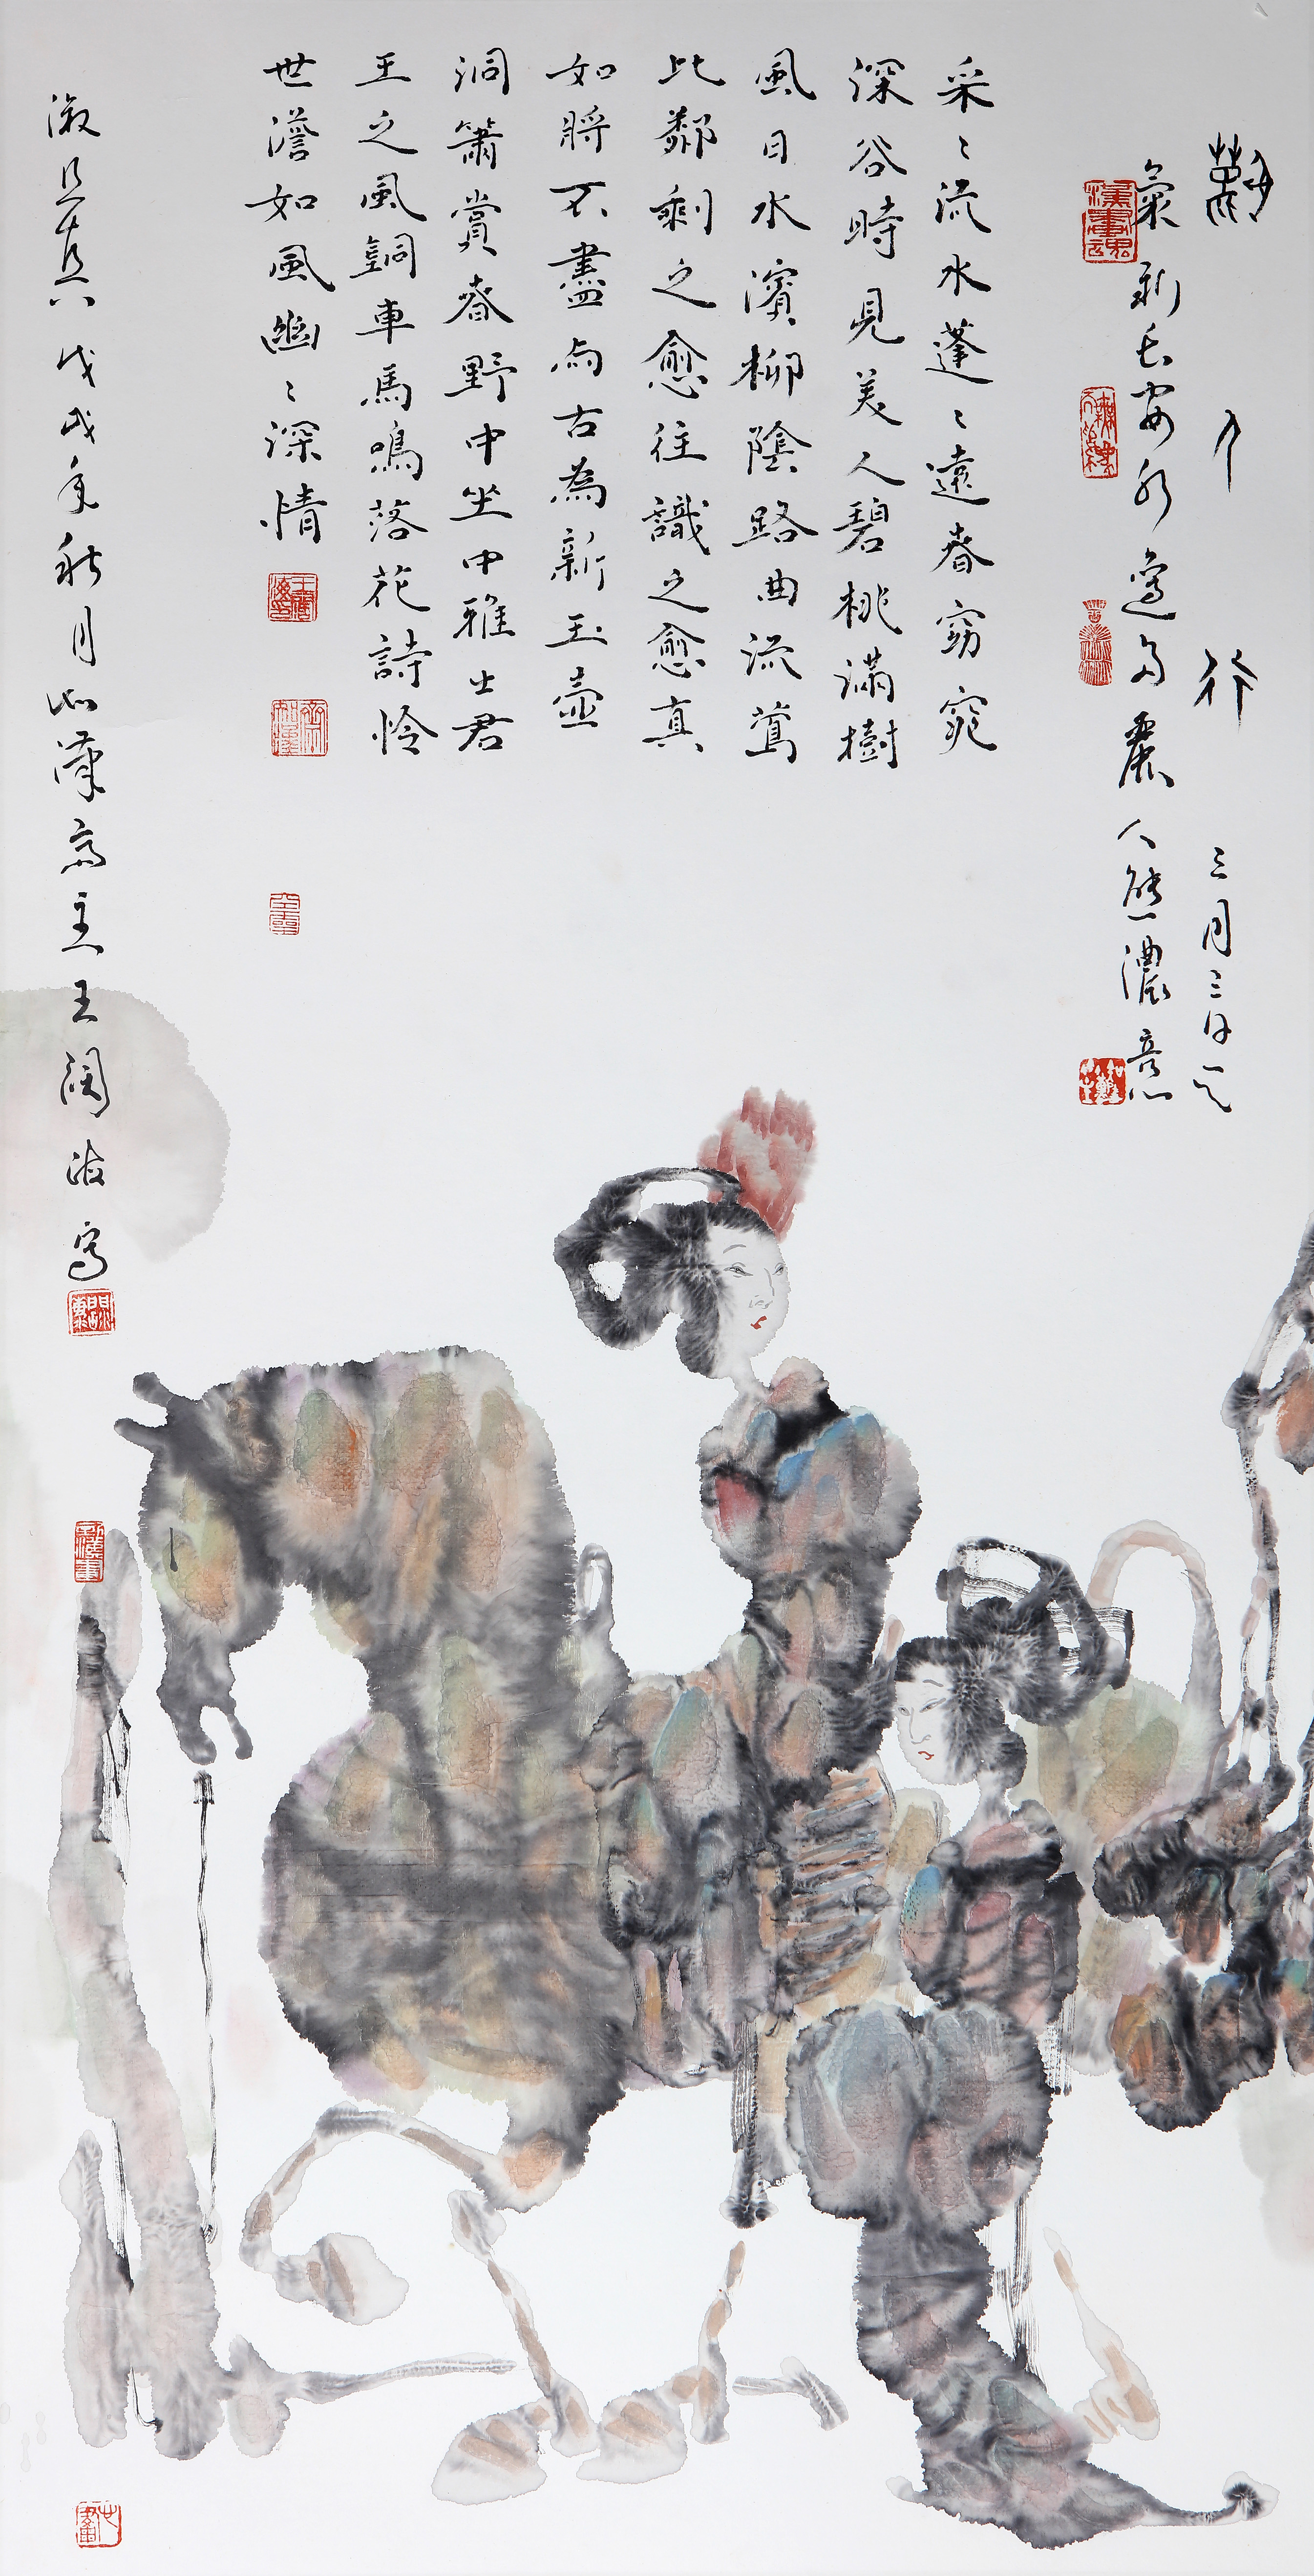 麗人行 三月三日天
氣新長安水邊多麗人態濃意
采〻流水蓬〻遠春窈窕
深谷時見美人碧桃滿樹
風日水濱柳陰路曲流鶯
比鄰剩之愈往識之愈真
如將不盡與古為新玉壺
洞簫賞春野中坐中雅士君
王之風銅車馬鳴落花詩怜
世澹如風幽〻深情
淑且真 戊戌年秋月 漢齋主王闊海寫